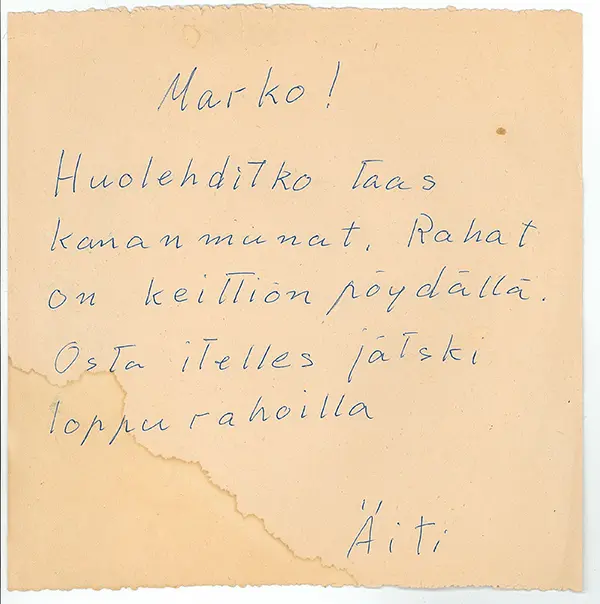 Marko!
Huolehditko taas
kananmunat. Rahat
on keittiön pöydällä.
Osta itelles jätski
loppurahoilla
Äiti